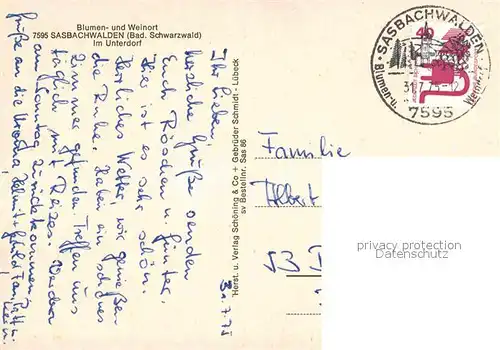 Blumen- und Weinort
7595 SASBACHWALDEN (Bad. Schwarzwald)
Im Unterdorf
31.7.75
Ihr Lieben!
herzliche Grüße senden
Euch Röschen u. Günter.
Hier ist es sehr schön.
Herrliches Wetter, wir genießen
die Ruhe. Haben ein schönes
Zimmer gefunden. Treffen uns
täglich mit Reizes. Werden
am Sonntag zurückkommen.
Grüße an die Uroma, Helmit
Herst. u. Verlag Schöning & Co + Gebrüder Schmidt · Lübeck
sv Bestellnr. Sas 86
SASBACHWALDEN
Blumen- u.
7595
40
Familie
Albert
53
privacy protection
Datenschutz